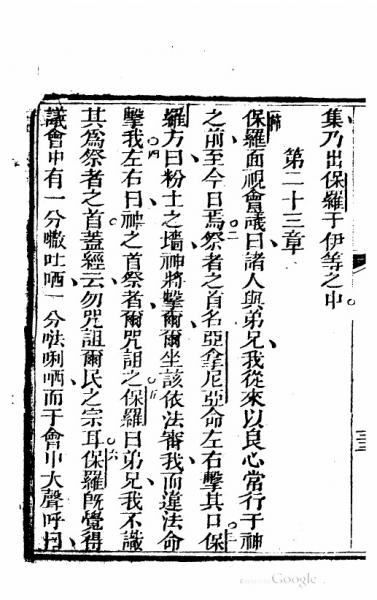 集乃出保羅于伊等之中
第二十三章
保羅面視會議曰諸人與弟兄我從來以良心常行于神
之前至今日焉祭者之首名亞拿尼亞命左右擊其口保
羅方曰粉土之墻神將擊爾爾坐該依法審我而違法命
擊我左右曰神之首祭者爾咒詛之保羅曰弟兄我不識
其為祭者之首蓋經云勿咒詛爾民之宗耳保羅既覺得
議會中有一分𠾀吐哂一分𠵽唎哂而于會中大聲呼曰
Google